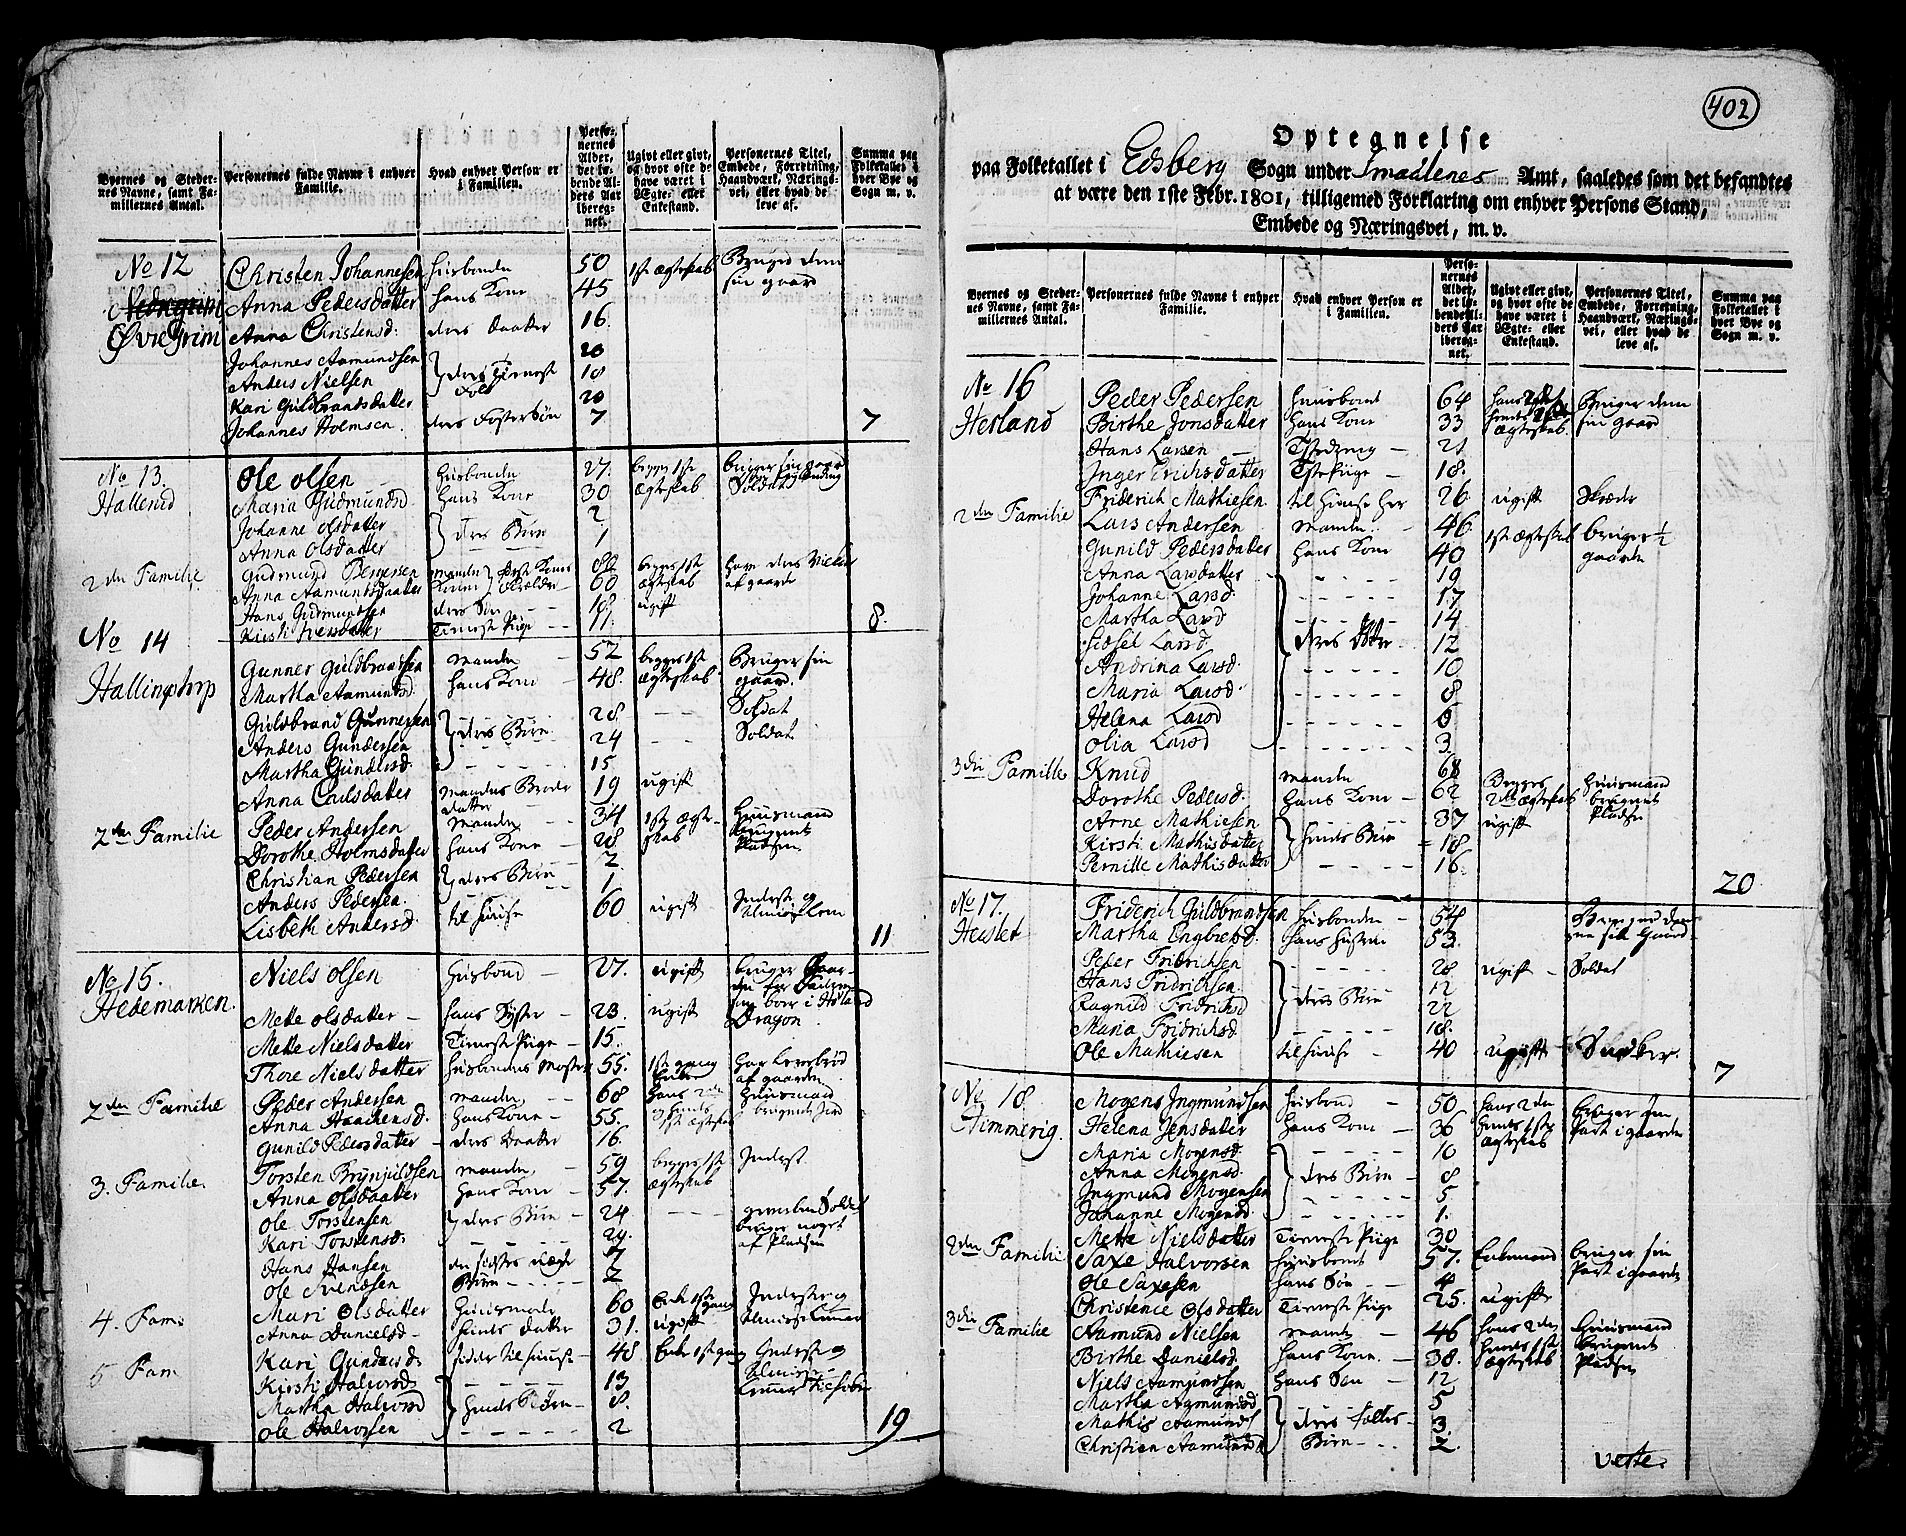 Byernes og Steder-
nes Navne, samt Fa-
milliernes Antal.
Personernes fulde Navne i enhver
Familie.
Hvad enhver Person er
i Familien.
Perso-
nernes
Alder,
det lø-
bende Al-
ders Aar
iberegn-
net.
Ugivt eller givt,
og hvor ofte de
have været i
Ægte- eller
Enkestand.
Personernes Titel,
Embede, Forretning,
Haandværk, Nærings-
vei, eller hvad de
leve af.
Summa paa
Folketallet i
hver Bye og
Sogn m. v.
No 12 Christen Johannesen Husbonde 50 1st Ægteskab Bruger denne
Øvre Grim Anna Pedersdatter hans Kone 45 sin gaard
Anna Christensd. deres Daatter 16
Johannes Aamundsen 20
Anders Nielsen deres Tieneste 18
Kari Guldbrantsdatter Folk 20
Johannes Holmsen deres Fostersøn 7 7
No 13. Ole Olsen Husbonde 27. begge 1ste
Hallerud Maria Gudmundsd hans Kone 30 Ægteskab Soldat
Johanne Olsdatter deres Børn 2
Anna Olsdatter 1
2den Familie Gudmund Bergersen mande 80 begge 1ste
Anna Aamundsdatter Kone 60 Ægteskab af gaarde
Hans Gudmundsen deres Søn 18 ugift
Kirsti Iversdatter Tieneste Pige 11. 8.
No 14 Gunner Guldbrandsen mande 52 begge 1ste Bruger sin
Hallingstorp Martha Aamundsd hans Kone 48. Ægteskab gaard.
Guldbrand Gunnersen deres Børn 28 Soldat
Anders Gundersen 24 Soldat
Martha Gundersd. 15
Anna Carlsdatter mandens Broder datter 19 ugift
2den Familie Peder Andersen mande 34 1st Ægte- Huusmand
Dorothe Holmsdatter hans Kone 28 skab bruger
Christian Pedersen deres Børn 2 Pladsen
Anders Pedersen 1
Lisbeth Andersd. til huuse 60 ugift Inderste og Almisse Lem 11
No 15. Niels Olsen Husbond 27. ugift bruger Gaar-
Hedemarken. den for
Mette Olsdatter hans Syster 23. ugift boer i Høland
Mette Nielsdatter Tieneste Pige 15. Dragon
Thore Nielsdatter Husbondens Moster 55. 1st gang Enke har Levebrød af gaarden
2den Familie Peder Andersen mande 68 hans 2den Huusmand
Anna Haachensd. hans Kone 55. 1st Ægteskab bruger Jord
Gunild Pedersdatter deres Daatter 16
3. Familie. Torsten Brynjuldsen mande 59 begge 1ste Inderst
Anna Olsdaatter hans Kone 57. Ægteskab
Ole Torstensen deres Børn 24 Solda
Kari Torstensd. 29. bruger noget
Hans Hansen 7 af Pladsen
Ole Svendsen Børn 2
4. Fam: Mari Olsdatter 60 Enke 1ste gang Inderste og
Anna Danielsd. hendes datter 31. ugift
5 Fam Kari Gundersd. til huuse 48 Enke 1st gang Inderste og
Kirsti Halvorsd. 13
Martha Halvorsd hendes Børn 8.
Ole Halvorsen 2 19
402
Optegnelse
paa Folketallet i Edsberg Sogn under Smaalenes Amt, saaledes som det befandtes
at være den 1ste Febr. 1801, tilligemed Forklaring om enhver Persons Stand,
Embede og Næringsvei, m. v.
Byernes og Steder-
nes Navne, samt Fa-
milliernes Antal.
Personernes fulde Navne i enhver
Familie.
Hvad enhver Person er
i Familien.
Perso-
nernes
Alder,
det lø-
bende Al-
ders Aar
iberegn-
net.
Ugivt eller givt,
og hvor ofte de
have været i
Ægte- eller
Enkestand.
Personernes Titel,
Embede, Forretning,
Haandværk, Nærings-
vei, eller hvad de
leve af.
Summa paa
Folketallet i
hver Bye og
Sogn m. v.
No 16 Peder Pedersen Huusbond 64 hans 2den Bruger denne
Hesland Birthe Jonsdatter hans Kone 33 Ægteskab sin gaard
Hans Larsen Tstedreng 21
Inger Erichsdatter Tstepige 18.
Friderich Mathiesen til huuse her 26 ugift Skræder
2den Familie Lars Andersen mande 46 1st Ægteskab bruger 1/2
Gunild Pedersdatter hans Kone 40 gaarde
Anna Larsdatter 19
Johanne Larsd. 17
Martha Larsd 14
Sissel Larsd. deres Døtre 12
Andrina Larsd. 10
Maria Larsd. 8
Helena Larsd 6
Olia Larsd 3
3die Familie Knud mande 68 Begges Huusmand
Dorothe Pedersd. hans Kone 62 2det Ægteskab bruger
Arne Mathiesen 37 ugift Pladsen
Kirsti Mathisdatter hendes Børn 18
Pernille Mathisdatter 16 20
No 17. Friderich Guldbrandsen Husbonde 54 Bruger den
Heislet Martha Engbretsd. hans Hustrue 53 Gaard
Peder Fridrichsen 28 ugift Soldat
Hans Fridrichsen. 12
Ragnild Fridrichsd deres Børn 22
Maria Fridrichsd. 18.
Ole Mathiesen til huuse 40 ugift Snedker. 7
No 18 Mogens Ingmundsen Husbond 50 hans 2den bruger sin
Himmerig. Helena Jensdatter hans Kone 36 hendes 1ste Ægteskab Part i gaarden
Maria Mogensd. 10
Anna Mogensd. deres Børn 8
Ingmund Mogensen 5
Johanne Mogensd. 1.
Mette Nielsdatter Tieneste Pige 30
2den Familie Saxe Halvorsen Huusbond 57. Enkemand bruger sin
Ole Saxesen hans Søn 4 Part i gaarde
Christence Olsdatter Tieneste Pige 25. ugift
3die Familie Aamund Nielsen mande 46 hans 2den Huusmand
Birthe Danielsd. hans Kone. 38. hendes 1ste bruger
Niels Aamundsen hans Søn 12 Ægteskab Pladsen
Martha Aamundsd 5
Mathis Aamunds deres fælles 3.
Christien Aamundsd Børn 2.
verte.